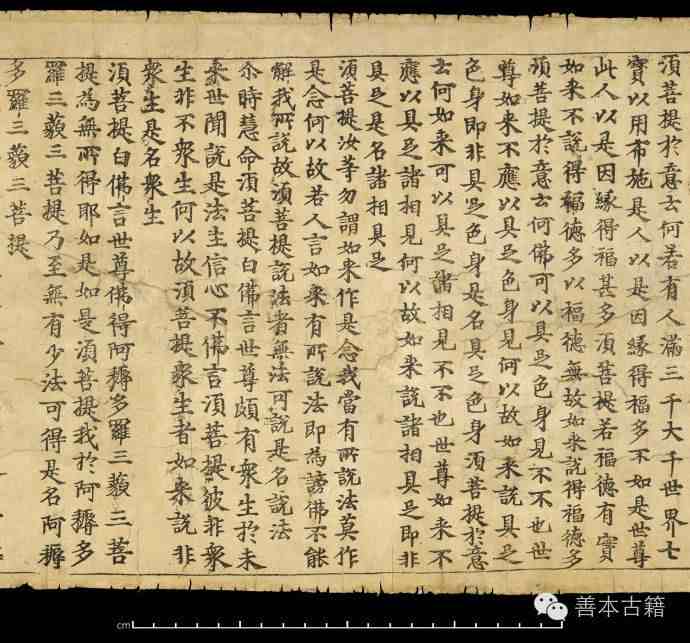 須菩提於意云何若有人滿三千大千世界七
寶以用布施是人以是因緣得福多不如是世尊
此人以是因緣得福甚多須菩提若福德有實
如來不說得福德多以福德無故如來說得福德多
須菩提於意云何佛可以具足色身見不不也世
尊如來不應以具足色身見何以故如來說具足
色身即非具足色身是名具足色身須菩提於意
云何如來可以具足諸相見不不也世尊如來不
應以具足諸相見何以故如來說諸相具足即非
具足是名諸相具足
須菩提汝等勿謂如來作是念我當有所說法莫作
是念何以故若人言如來有所說法即為謗佛不能
解我所說故須菩提說法者無法可說是名說法
尒時慧命須菩提白佛言世尊頗有衆生於未
來世聞說是法生信心不佛言須菩提彼非衆
生非不衆生何以故須菩提衆生者如來說非
衆生是名衆生
須菩提白佛言世尊佛得阿耨多羅三藐三菩
提為無所得耶如是如是須菩提我於阿耨多
羅三藐三菩提乃至無有少法可得是名阿耨
多羅三藐三菩提
cm
善本古籍